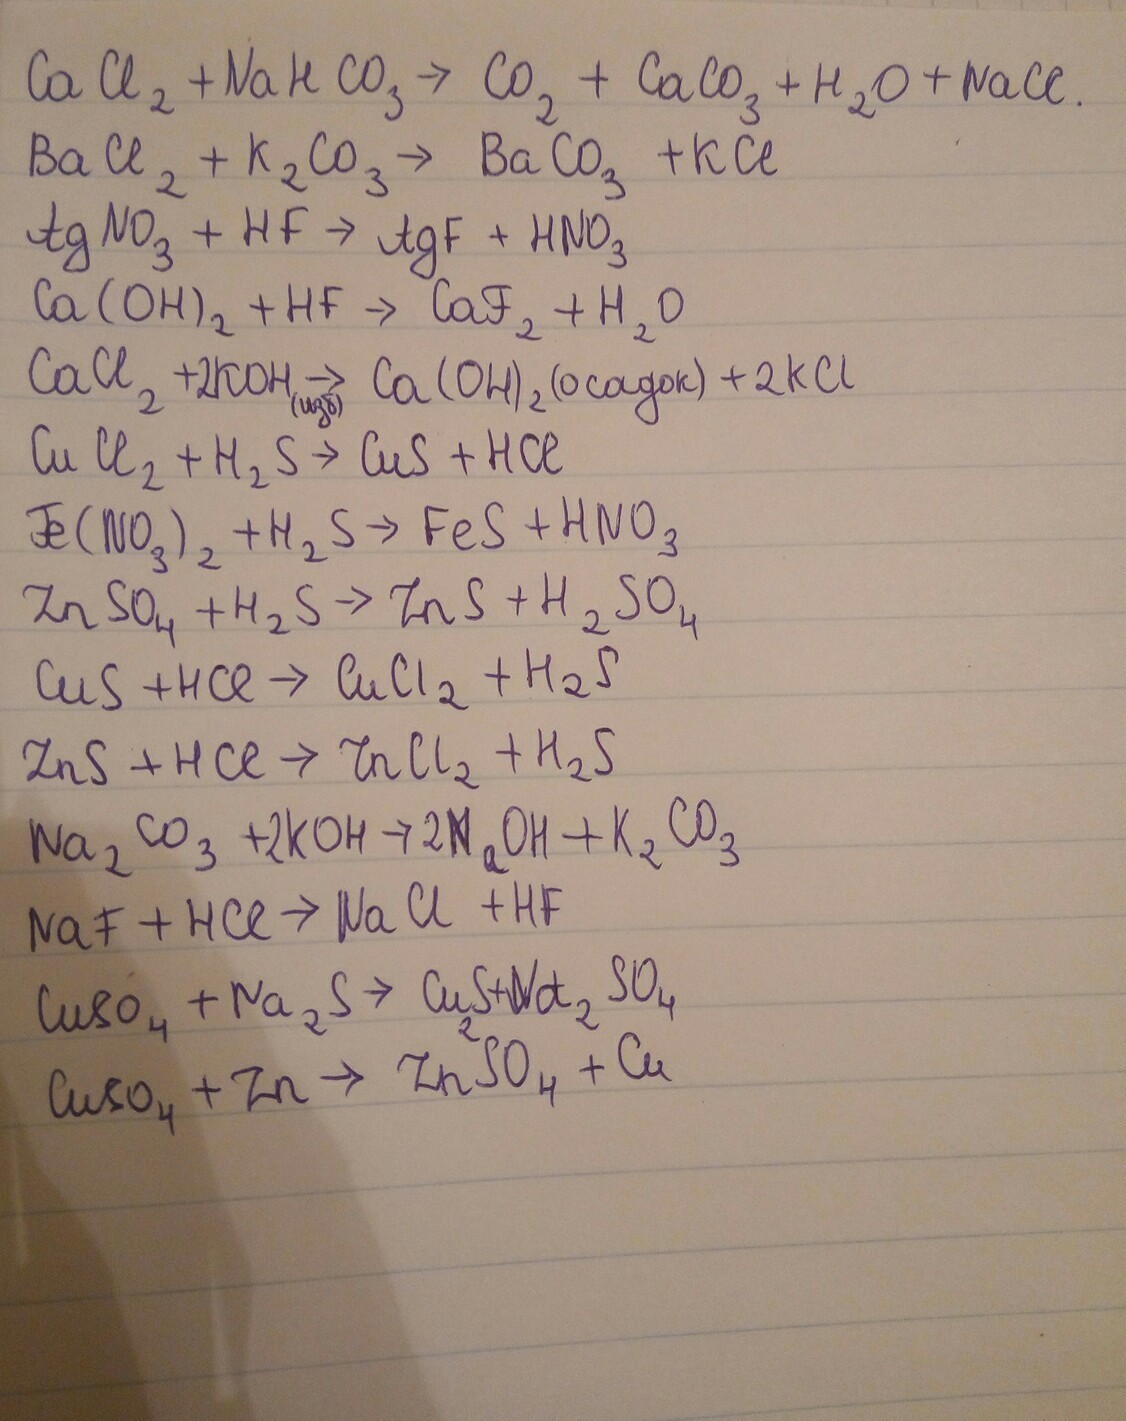 CaCl₂ + NaHCO₃ → CO₂ + CaCO₃ + H₂O + NaCl.
BaCl₂ + K₂CO₃ → BaCO₃ + KCl
AgNO₃ + HF → AgF + HNO₃
Ca(OH)₂ + HF → CaF₂ + H₂O
CaCl₂ + 2KOH (изб) → Ca(OH)₂ (осадок) + 2KCl
CuCl₂ + H₂S → CuS + HCl
Fe(NO₃)₂ + H₂S → FeS + HNO₃
ZnSO₄ + H₂S → ZnS + H₂SO₄
CuS + HCl → CuCl₂ + H₂S
ZnS + HCl → ZnCl₂ + H₂S
Na₂CO₃ + 2KOH → 2NaOH + K₂CO₃
NaF + HCl → NaCl + HF
CuSO₄ + Na₂S → CuS₂ + Na₂SO₄
CuSO₄ + Zn → ZnSO₄ + Cu